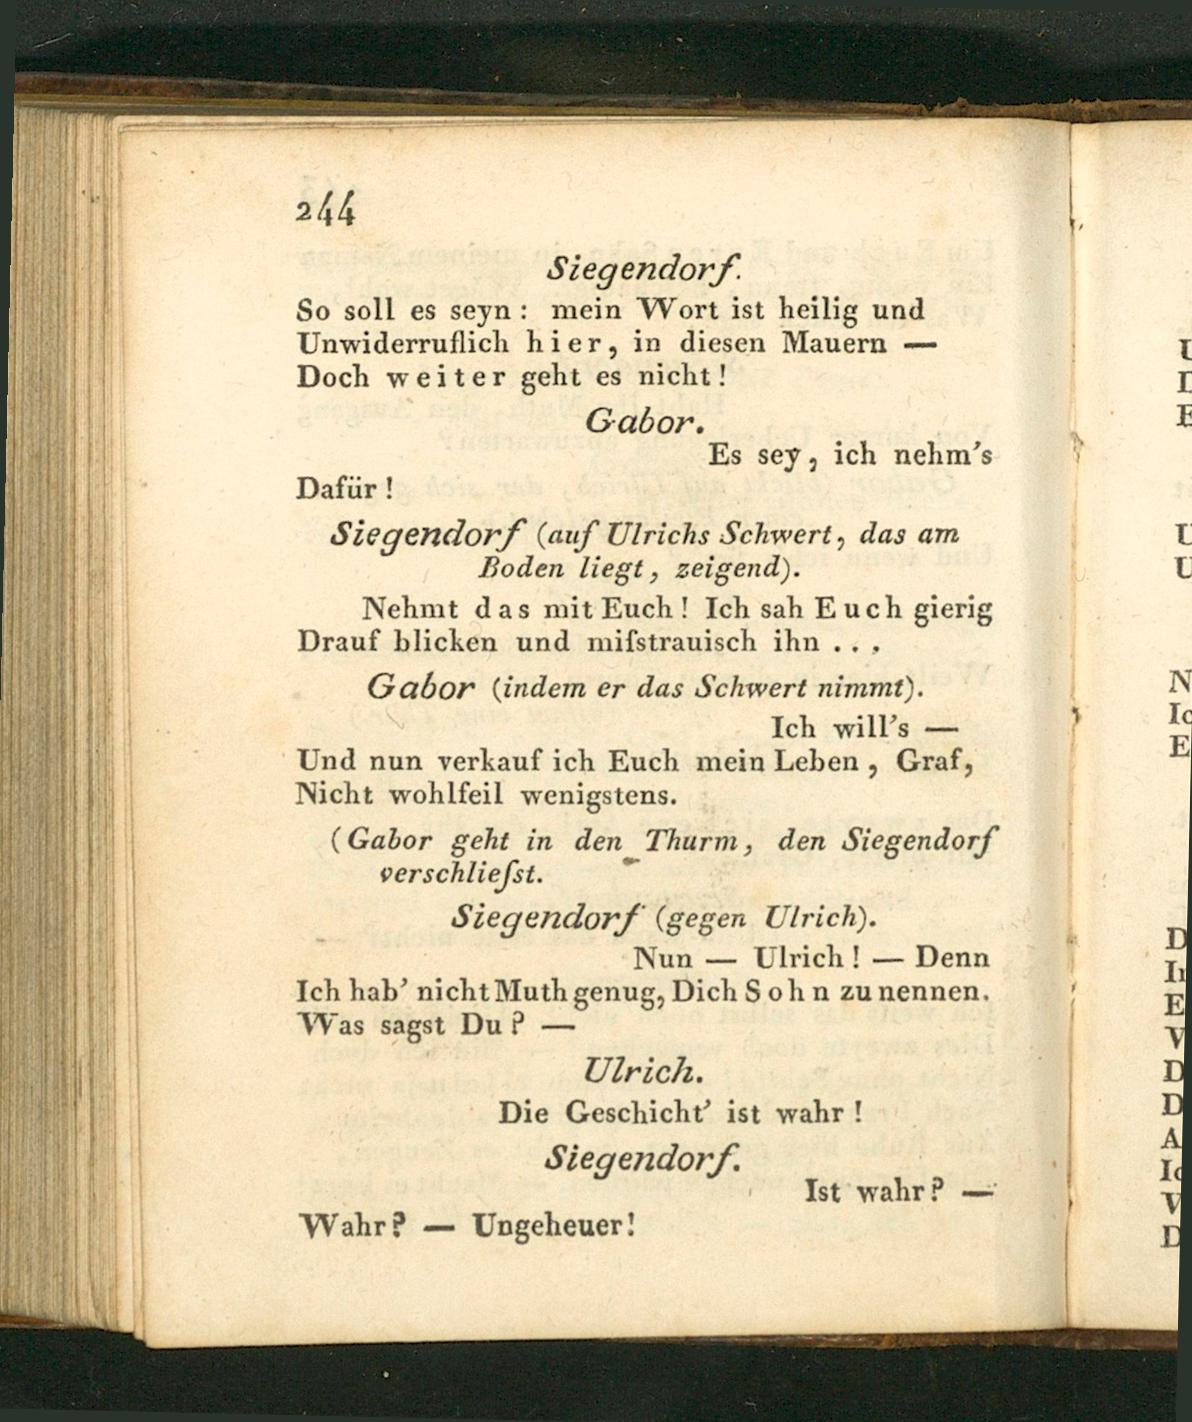 244
Siegendorf.
So soll es seyn: mein Wort ist heilig und
Unwiderruflich hier, in diesen Mauern —
Doch weiter geht es nicht!
Gabor.
Es sey, ich nehm's
Dafür!
Siegendorf (auf Ulrichs Schwert, das am
Boden liegt, zeigend).
Nehmt das mit Euch! Ich sah Euch gierig
Drauf blicken und miſstrauisch ihn . . .
Gabor (indem er das Schwert nimmt).
Ich will's —
Und nun verkauf ich Euch mein Leben, Graf,
Nicht wohlfeil wenigstens.
(Gabor geht in den Thurm, den Siegendorf
verschlieſst.
Siegendorf (gegen Ulrich).
Nun — Ulrich! — Denn
Ich hab' nicht Muth genug, Dich Sohn zu nennen.
Was sagst Du? —
Ulrich.
Die Geschicht' ist wahr!
Siegendorf.
Ist wahr? —
Wahr? — Ungeheuer!